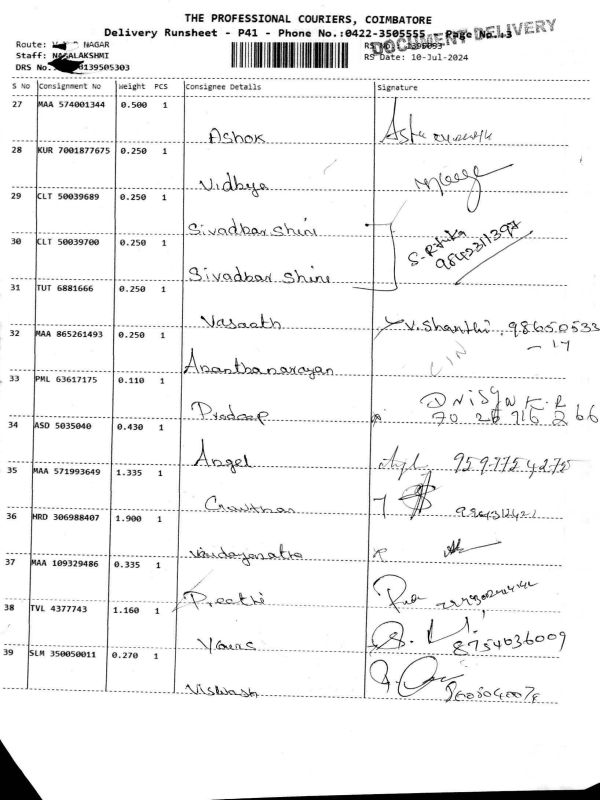 THE PROFESSIONAL COURIERS, COIMBATORE
Delivery Runsheet - P41 - Phone No.:0422-3505555 - Page No.:3
DOCUMENT DELIVERY
Route: NAGAR
Staff: NAGALAKSHMI
RS Date: 10-Jul-2024
DRS No. 139505303
S No Consignment No Weight PCS Consignee Details Signature
27 MAA 574001344 0.500 1
Ashok
28 KUR 7001877675 0.250 1
Vidhya
29 CLT 50039689 0.250 1
Sivadharshini
30 CLT 50039700 0.250 1
S. Ritika
9842311397
Sivadharshini
31 TUT 6881666 0.250 1
Vasanth V. Shanthi. 98650533
- 17
32 MAA 865261493 0.250 1
Ananthanarayan
33 PML 63617175 0.110 1
Pradeep
34 ASD 5035040 0.430 1
Angel 9597754275
35 MAA 571993649 1.335 1
36 HRD 306988407 1.900 1
37 MAA 109329486 0.335 1
Preethi
38 TVL 4377743 1.160 1
Yours 8754036009
39 SLM 350050011 0.270 1
Viswash